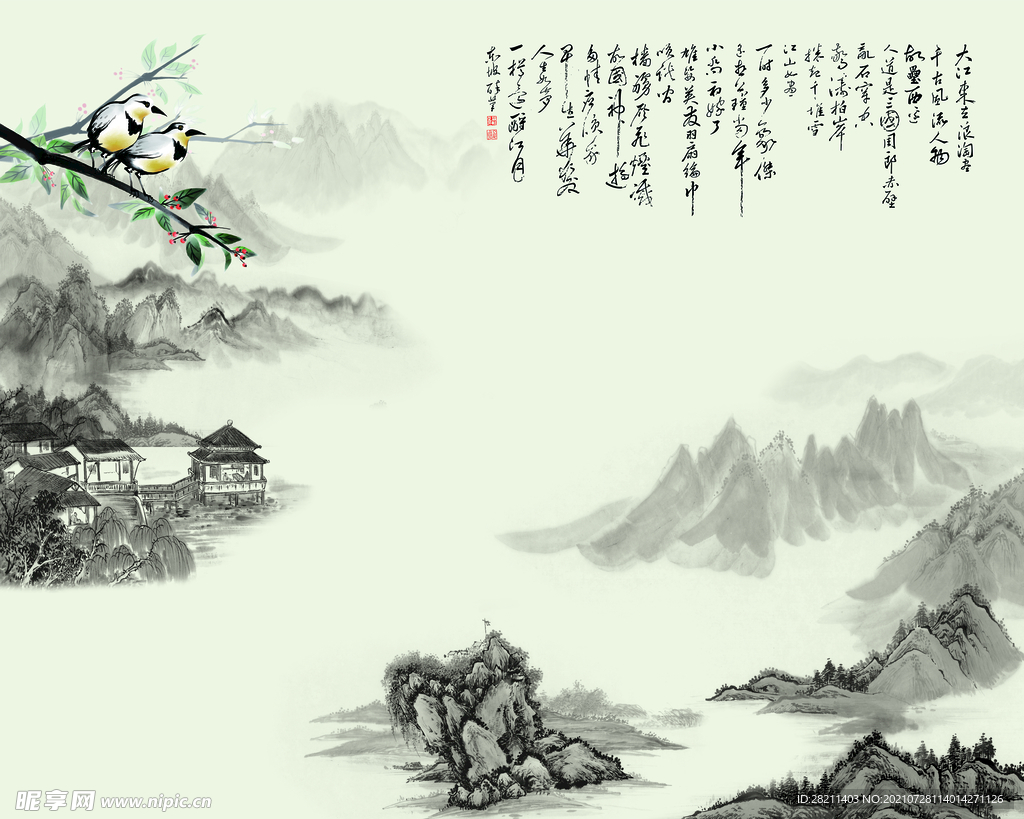 大江東去浪淘盡
千古風流人物
故壘西邊
人道是三國周郎赤壁
亂石穿空
驚濤拍岸
捲起千堆雪
江山如畫
一時多少豪傑
遙想公瑾當年
小喬初嫁了
雄姿英發羽扇綸巾
笑談間
檣艣灰飛煙滅
故國神遊
多情應笑我
早生華髮
人生如夢
一樽還酹江月
東坡
昵享网 www.nipic.cn
ID:28211403 NO:20210728114014271126